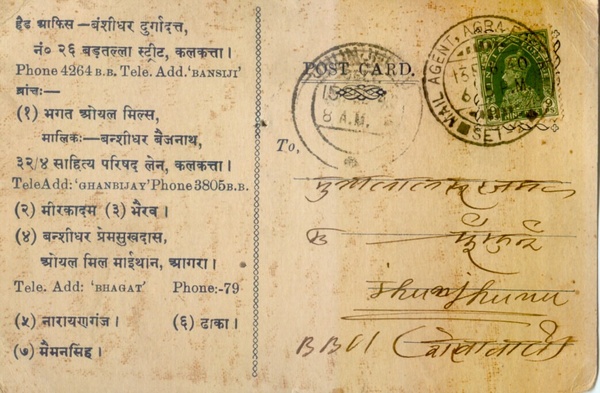 हैड आफिस - बंशीधर दुर्गादत्त,
नं० २६ बड़तल्ला स्ट्रीट, कलकत्ता।
Phone 4264 B.B. Tele. Add. 'BANSIJI'
ब्रांच:—
(१) भगत ओयल मिल्स,
मालिक:—बन्शीधर बैजनाथ,
३२/४ साहित्य परिषद लेन, कलकत्ता।
TeleAdd: 'GHANBIJAY' Phone 3805 B.B.
(२) मीरकादम (३) भैरव।
(४) बन्शीधर प्रेमसुखदास,
ओयल मिल माईथान, आगरा।
Tele. Add: 'BHAGAT' Phone:-79
(५) नारायणगंज। (६) ढाका।
(७) मैमनसिंह।
POST CARD.
MAIL AGENT, AGRA
SET
8 A.M.
To,
Jhunjhunu